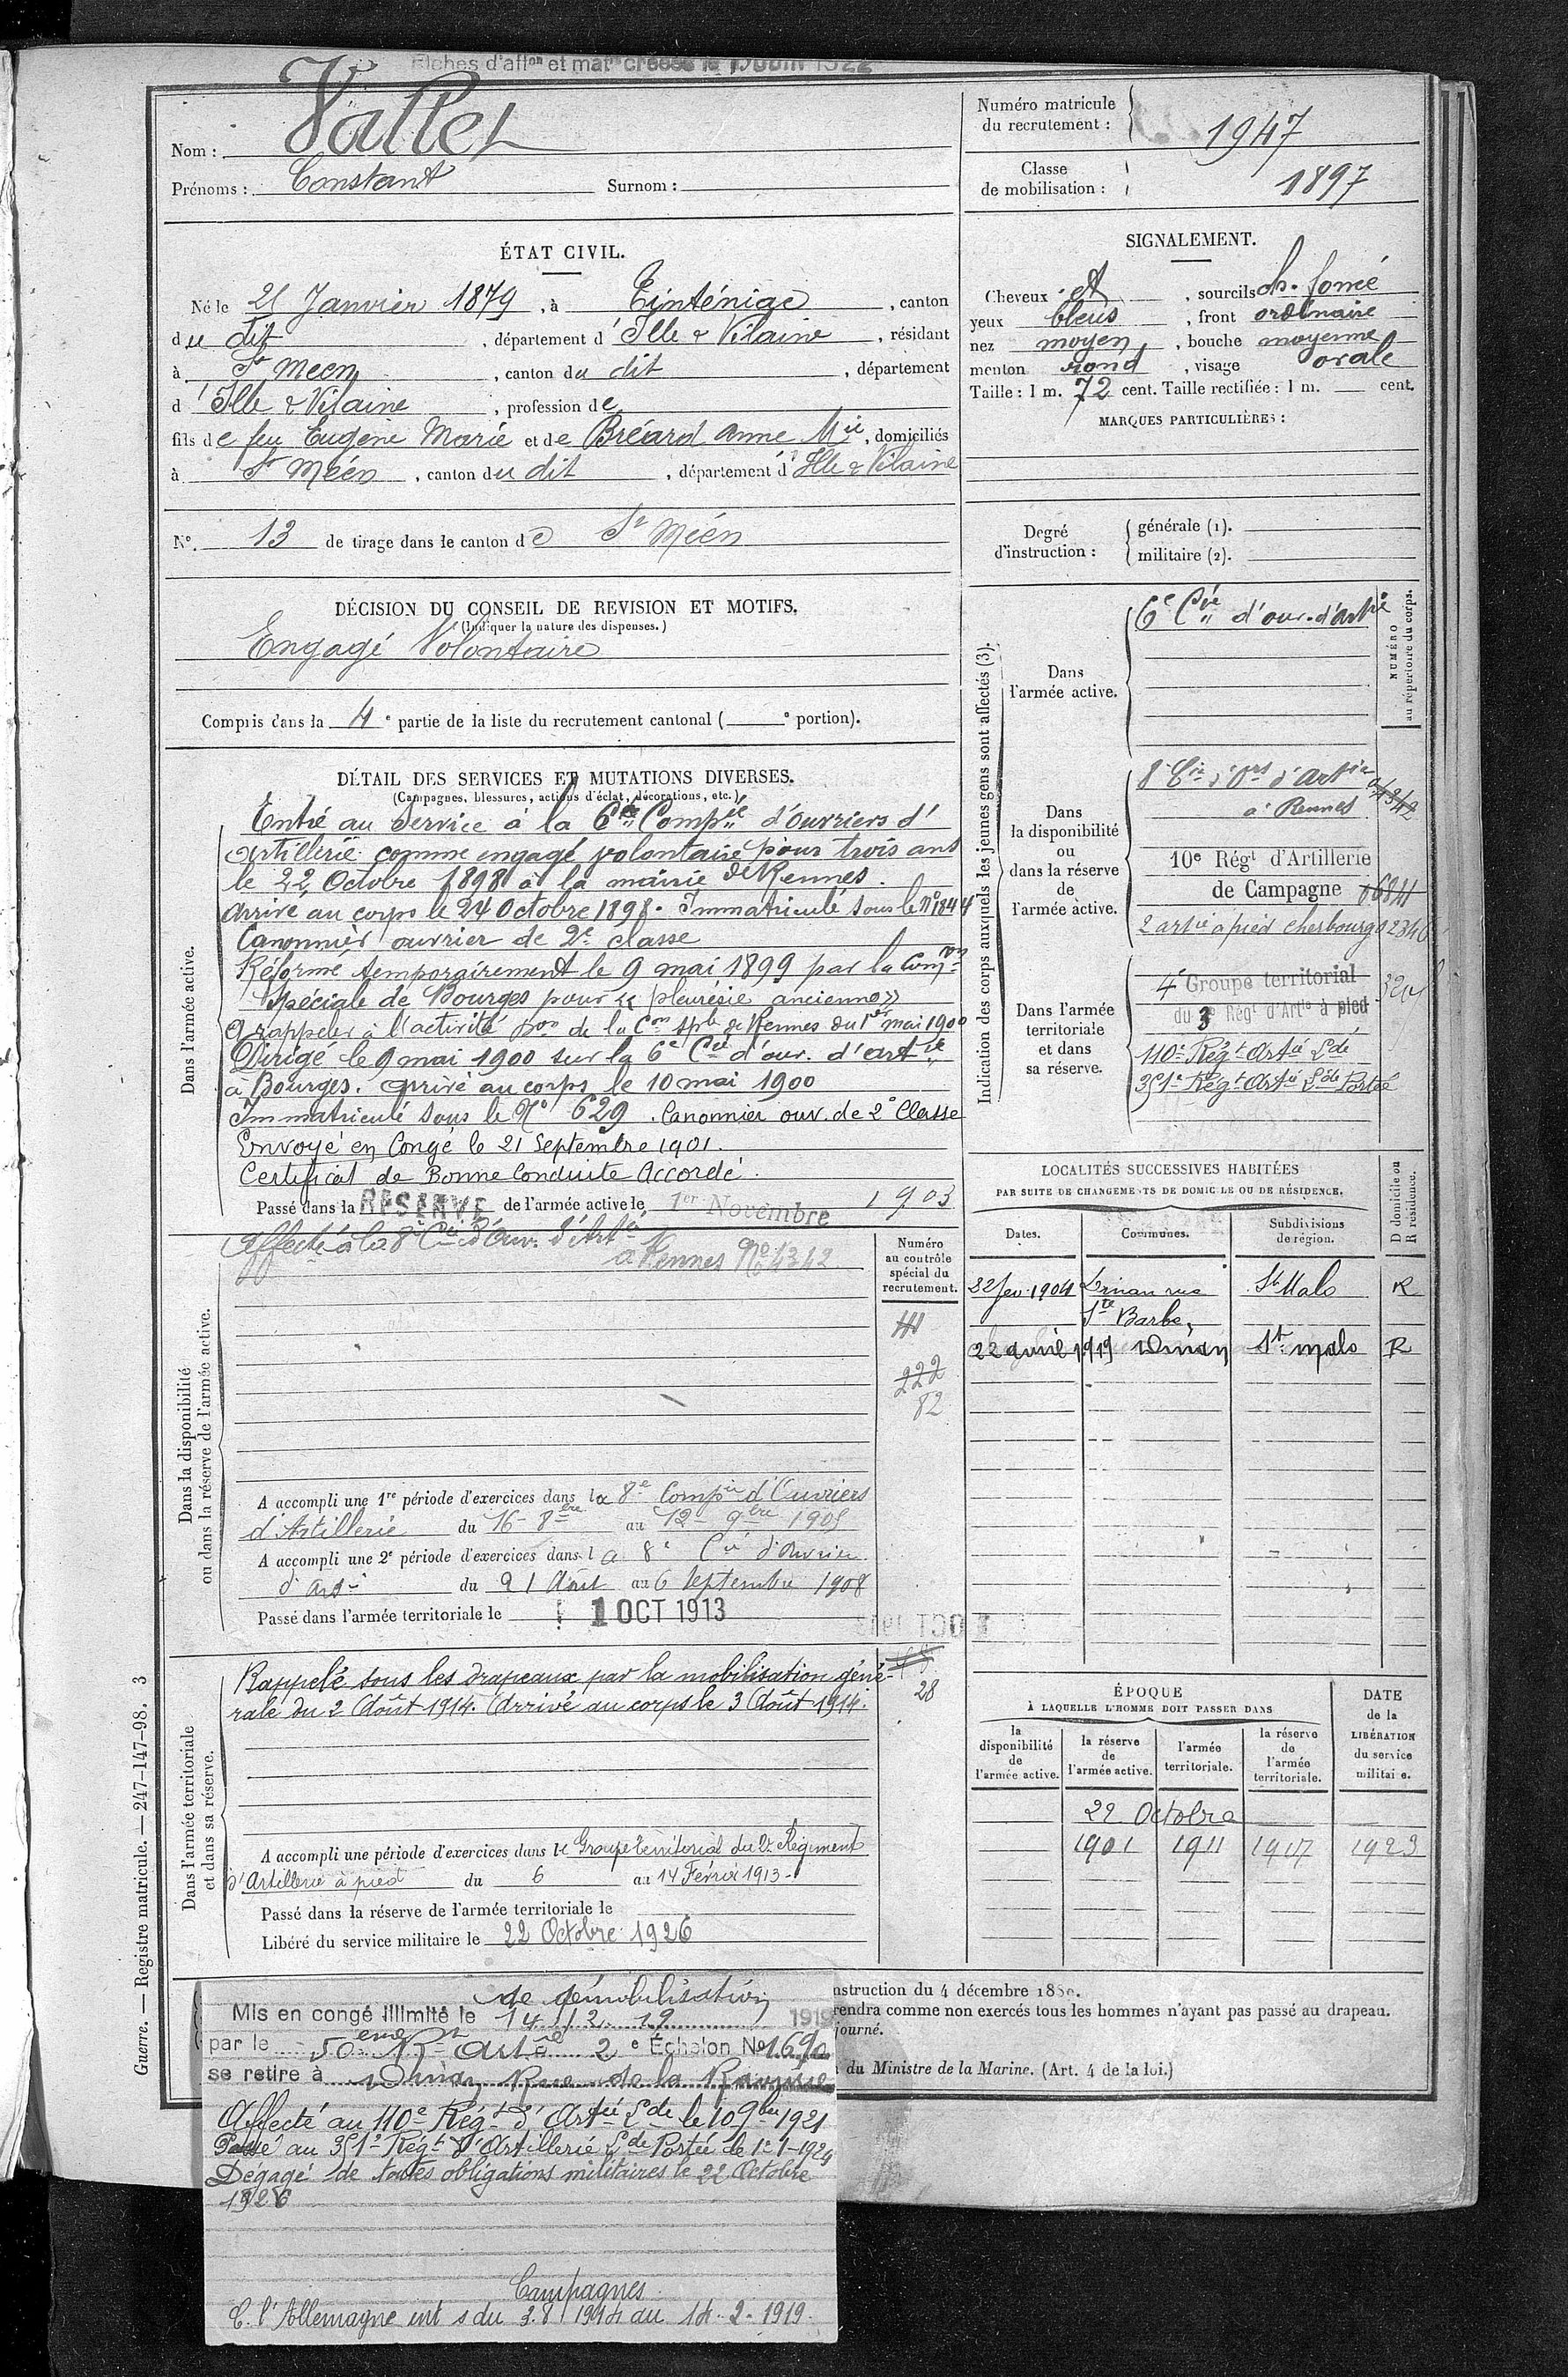 Fiches d'aff<sup>on</sup> et mat<sup>n</sup> créées le 15 Juin 1922
Nom : Vallet
Prénoms : Constant Surnom :
Numéro matricule du recrutement : 1947
Classe de mobilisation : 1897
ÉTAT CIVIL.
Né le 21 Janvier 1879, à Tinténiac, canton
du dit, département d'Ille & Vilaine, résidant
à St Meen, canton du dit, département
d'Ille & Vilaine, profession de
fils de feu Eugène Marie et de Bréard Anne Mie, domiciliés
à St Méen, canton du dit, département d'Ille & Vilaine
N° 13 de tirage dans le canton de St Méen
SIGNALEMENT.
Cheveux et, sourcils ch. foncé
yeux bleus, front ordinaire
nez moyen, bouche moyenne
menton rond, visage ovale
Taille : 1 m. 72 cent. Taille rectifiée : 1 m. cent.
MARQUES PARTICULIÈRES :
Degré d'instruction : générale (1).
militaire (2).
DÉCISION DU CONSEIL DE REVISION ET MOTIFS.
(Indiquer la nature des dispenses.)
Engagé Volontaire
Compris dans la 4e partie de la liste du recrutement cantonal ( e portion).
DÉTAIL DES SERVICES ET MUTATIONS DIVERSES.
(Campagnes, blessures, actions d'éclat, décorations, etc.)
Dans l'armée active.
Entré au Service à la 6e Compie d'Ouvriers d'
Artillerie comme engagé volontaire pour trois ans
le 22 Octobre 1898 à la mairie de Rennes.
Arrivé au corps le 24 Octobre 1898. Immatriculé sous le N° 1844
Canonnier ouvrier de 2e classe
Réformé temporairement le 9 mai 1899 par la Comon
Spéciale de Bourges pour « pleurésie ancienne »
A rappeler à l'activité pon de la Con Sple de Rennes du 1er mai 1900
Dirigé le 9 mai 1900 sur la 6e Cie d'ouv. d'artie
à Bourges. Arrivé au corps le 10 mai 1900
Immatriculé sous le N° 629. Canonnier ouv. de 2e Classe
Envoyé en Congé le 21 Septembre 1901.
Certificat de Bonne Conduite Accordé.
Passé dans la RÉSERVE de l'armée active le 1er Novembre 1903
Indication des corps auxquels les jeunes gens sont affectés (3).
NUMÉRO au répertoire du corps.
Dans l'armée active.
6e Cie d'ouv. d'artie
Dans la disponibilité ou dans la réserve de l'armée active.
8e Cie d'Ors d'Artie
à Rennes
10e Régt d'Artillerie
de Campagne
2 artie à pied Cherbourg
Dans l'armée territoriale et dans sa réserve.
4e Groupe territorial
du 3e Régt d'Artie à pied
110e Régt Artie Lde
351e Régt Artie Lde Portée
Dans la disponibilité ou dans la réserve de l'armée active.
Affecté à la 8e Cie d'Ouv. d'Artie
à Rennes N° 4342
Numéro au contrôle spécial du recrutement.
222
82
A accompli une 1re période d'exercices dans la 8e Compie d'Ouvriers
d'Artillerie du 16 8bre au 12 9bre 1905
A accompli une 2e période d'exercices dans la 8e Cie d'Ouvriers
d'Artie du 21 Août au 6 Septembre 1908
Passé dans l'armée territoriale le 1 OCT 1913
LOCALITÉS SUCCESSIVES HABITÉES
PAR SUITE DE CHANGEMENTS DE DOMICILE OU DE RÉSIDENCE.
Dates. Communes. Subdivisions de région. D domicile ou R résidence.
22 fev. 1904 Dinan rue St Malo R
Ste Barbe,
22 avril 1919 Dinan St malo R
Dans l'armée territoriale et dans sa réserve.
Rappelé sous les drapeaux par la mobilisation géné-
rale du 2 Août 1914. Arrivé au corps le 3 Août 1914.
28
A accompli une période d'exercices dans le Groupe territorial du 2e Régiment
d'Artillerie à pied du 6 au 14 Février 1913
Passé dans la réserve de l'armée territoriale le
Libéré du service militaire le 22 Octobre 1926
ÉPOQUE
À LAQUELLE L'HOMME DOIT PASSER DANS
la disponibilité de l'armée active. la réserve de l'armée active. l'armée territoriale. la réserve de l'armée territoriale. DATE de la LIBÉRATION du service militaire.
22 Octobre
1901 1911 1917 1923
Guerre. — Registre matricule. — 247-147-98. 3
nstruction du 4 décembre 18
rendra comme non exercés tous les hommes n'ayant pas passé au drapeau.
journé.
du Ministre de la Marine. (Art. 4 de la loi.)
de démobilisation
Mis en congé illimité le 14 2 19 1919
par le 50eme Rt Artie 2e Échelon N° 1690
se retire à Dinan Rue de la
Affecté au 110e Régt d'Artie Lde le 10 9bre 1921
Passé au 351e Régt d'Artillerie Lde Portée le 1-1-1924
Dégagé de toutes obligations militaires le 22 Octobre
1926
Campagnes
C. l'Allemagne int s du 3.8 1914 au 14-2-1919.